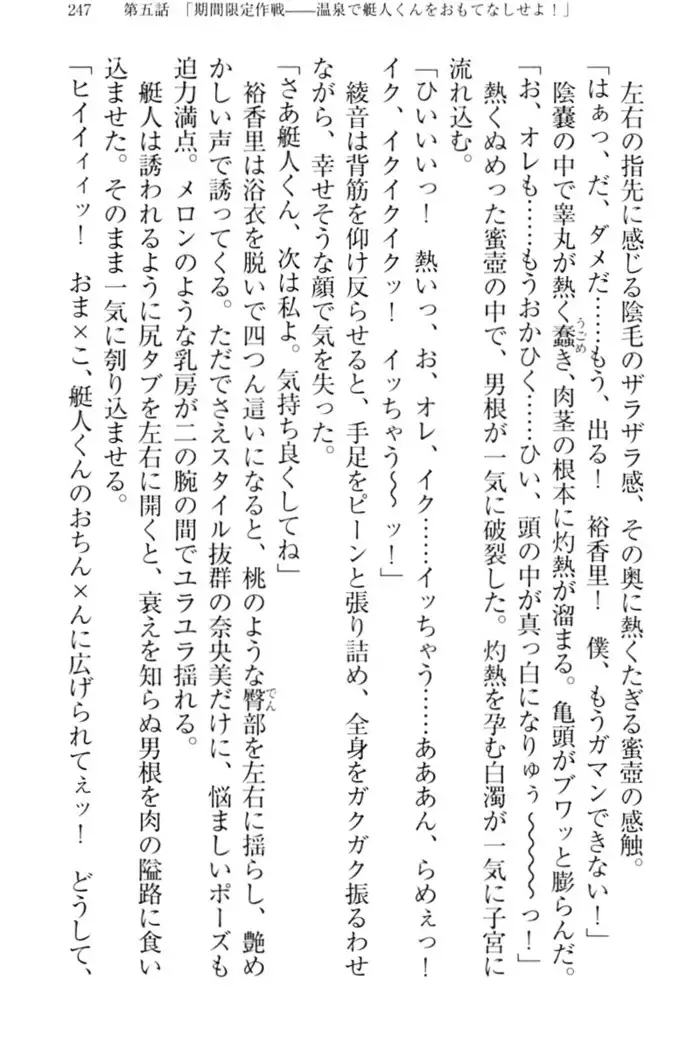 247　第五話　「期間限定作戦――温泉で艇人くんをおもてなしせよ！」
左右の指先に感じる陰毛のザラザラ感、その奥に熱くたぎる蜜壺の感触。
「はぁっ、だ、ダメだ……もう、出る！　裕香里！　僕、もうガマンできない！」
陰嚢の中で睾丸が熱く蠢き、肉茎の根本に灼熱が溜まる。亀頭がブワッと膨らんだ。
「お、オレも……もうおかひく……ひい、頭の中が真っ白になりゅぅ～～～～っ！」
熱くぬめった蜜壺の中で、男根が一気に破裂した。灼熱を孕む白濁が一気に子宮に
流れ込む。
「ひいいいっ！　熱いっ、お、オレ、イク……イッちゃう……あああん、らめぇっ！
イク、イクイクイクッ！　イッちゃう～～ッ！」
綾音は背筋を仰け反らせると、手足をピーンと張り詰め、全身をガクガク振るわせ
ながら、幸せそうな顔で気を失った。
「さあ艇人くん、次は私よ。気持ち良くしてね」
裕香里は浴衣を脱いで四つん這いになると、桃のような臀部を左右に揺らし、艶め
かしい声で誘ってくる。ただでさえスタイル抜群の奈央美だけに、悩ましいポーズも
迫力満点。メロンのような乳房が二の腕の間でユラユラ揺れる。
艇人は誘われるように尻タブを左右に開くと、衰えを知らぬ男根を肉の隘路に食い
込ませた。そのまま一気に刳り込ませる。
「ヒイイィィッ！　おま×こ、艇人くんのおちん×んに広げられてぇッ！　どうして、
うごめ
でん